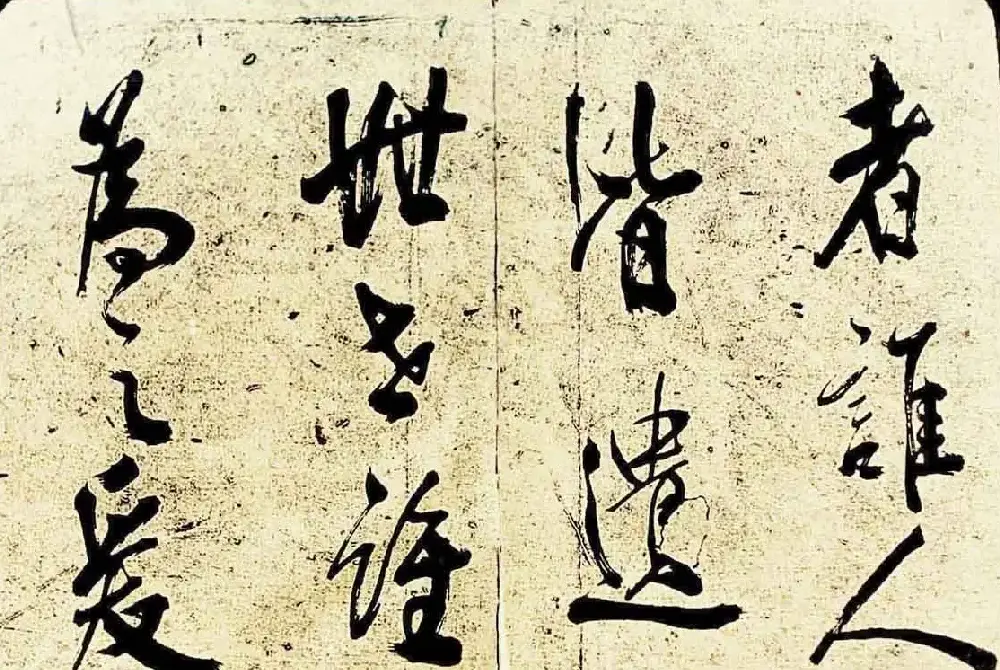 者誰人
皆遺
世誰
為之